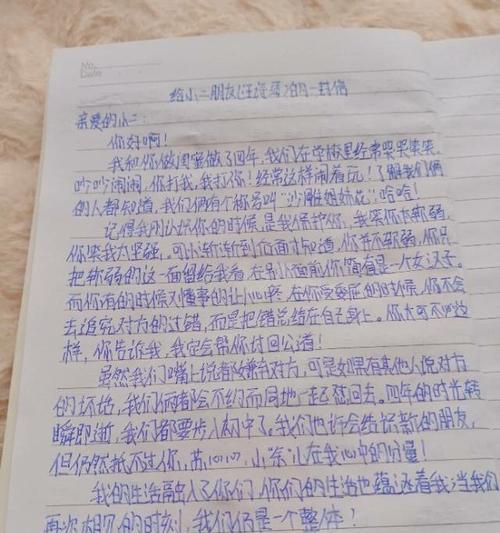 No.
Date
给小二朋友(汪)的一封信
亲爱的小二:
你好啊!
我和你做闺蜜做了四年,我们在学校里经常哭哭笑笑、
吵吵闹闹,你打我,我打你!经常这样闹着玩!了解我们俩
的人都知道,我们俩有个称号叫“沙雕姐妹花”,哈哈!
记得我刚认识你的时候,是我保护你,我笑你太软弱,
你笑我太坚强。可以渐渐到后面才知道,你并不软弱,你只
把软弱的这一面留给我看,在别人面前你简直是一个女汉子。
而你有的时候又懂事的让人心疼,在你受委屈的时候,你不会
去追究对方的过错,而是把错总结在自己身上。你大可不必这
样,你告诉我,我定会帮你讨回公道!
虽然我们嘴上说都嫌弃对方,可是如果有其他人说对方
的坏话,我们俩都会不约而同地一起怼回去。四年的时光转
瞬即逝,我们都要步入初中了。我们也许会结识新的朋友,
但仍然抵不过你,苏,小,在我心中的分量!
我的生活融入了你们,你们的生活也蕴送着我,当我们
再次相见的时刻,我们仍是一个整体!